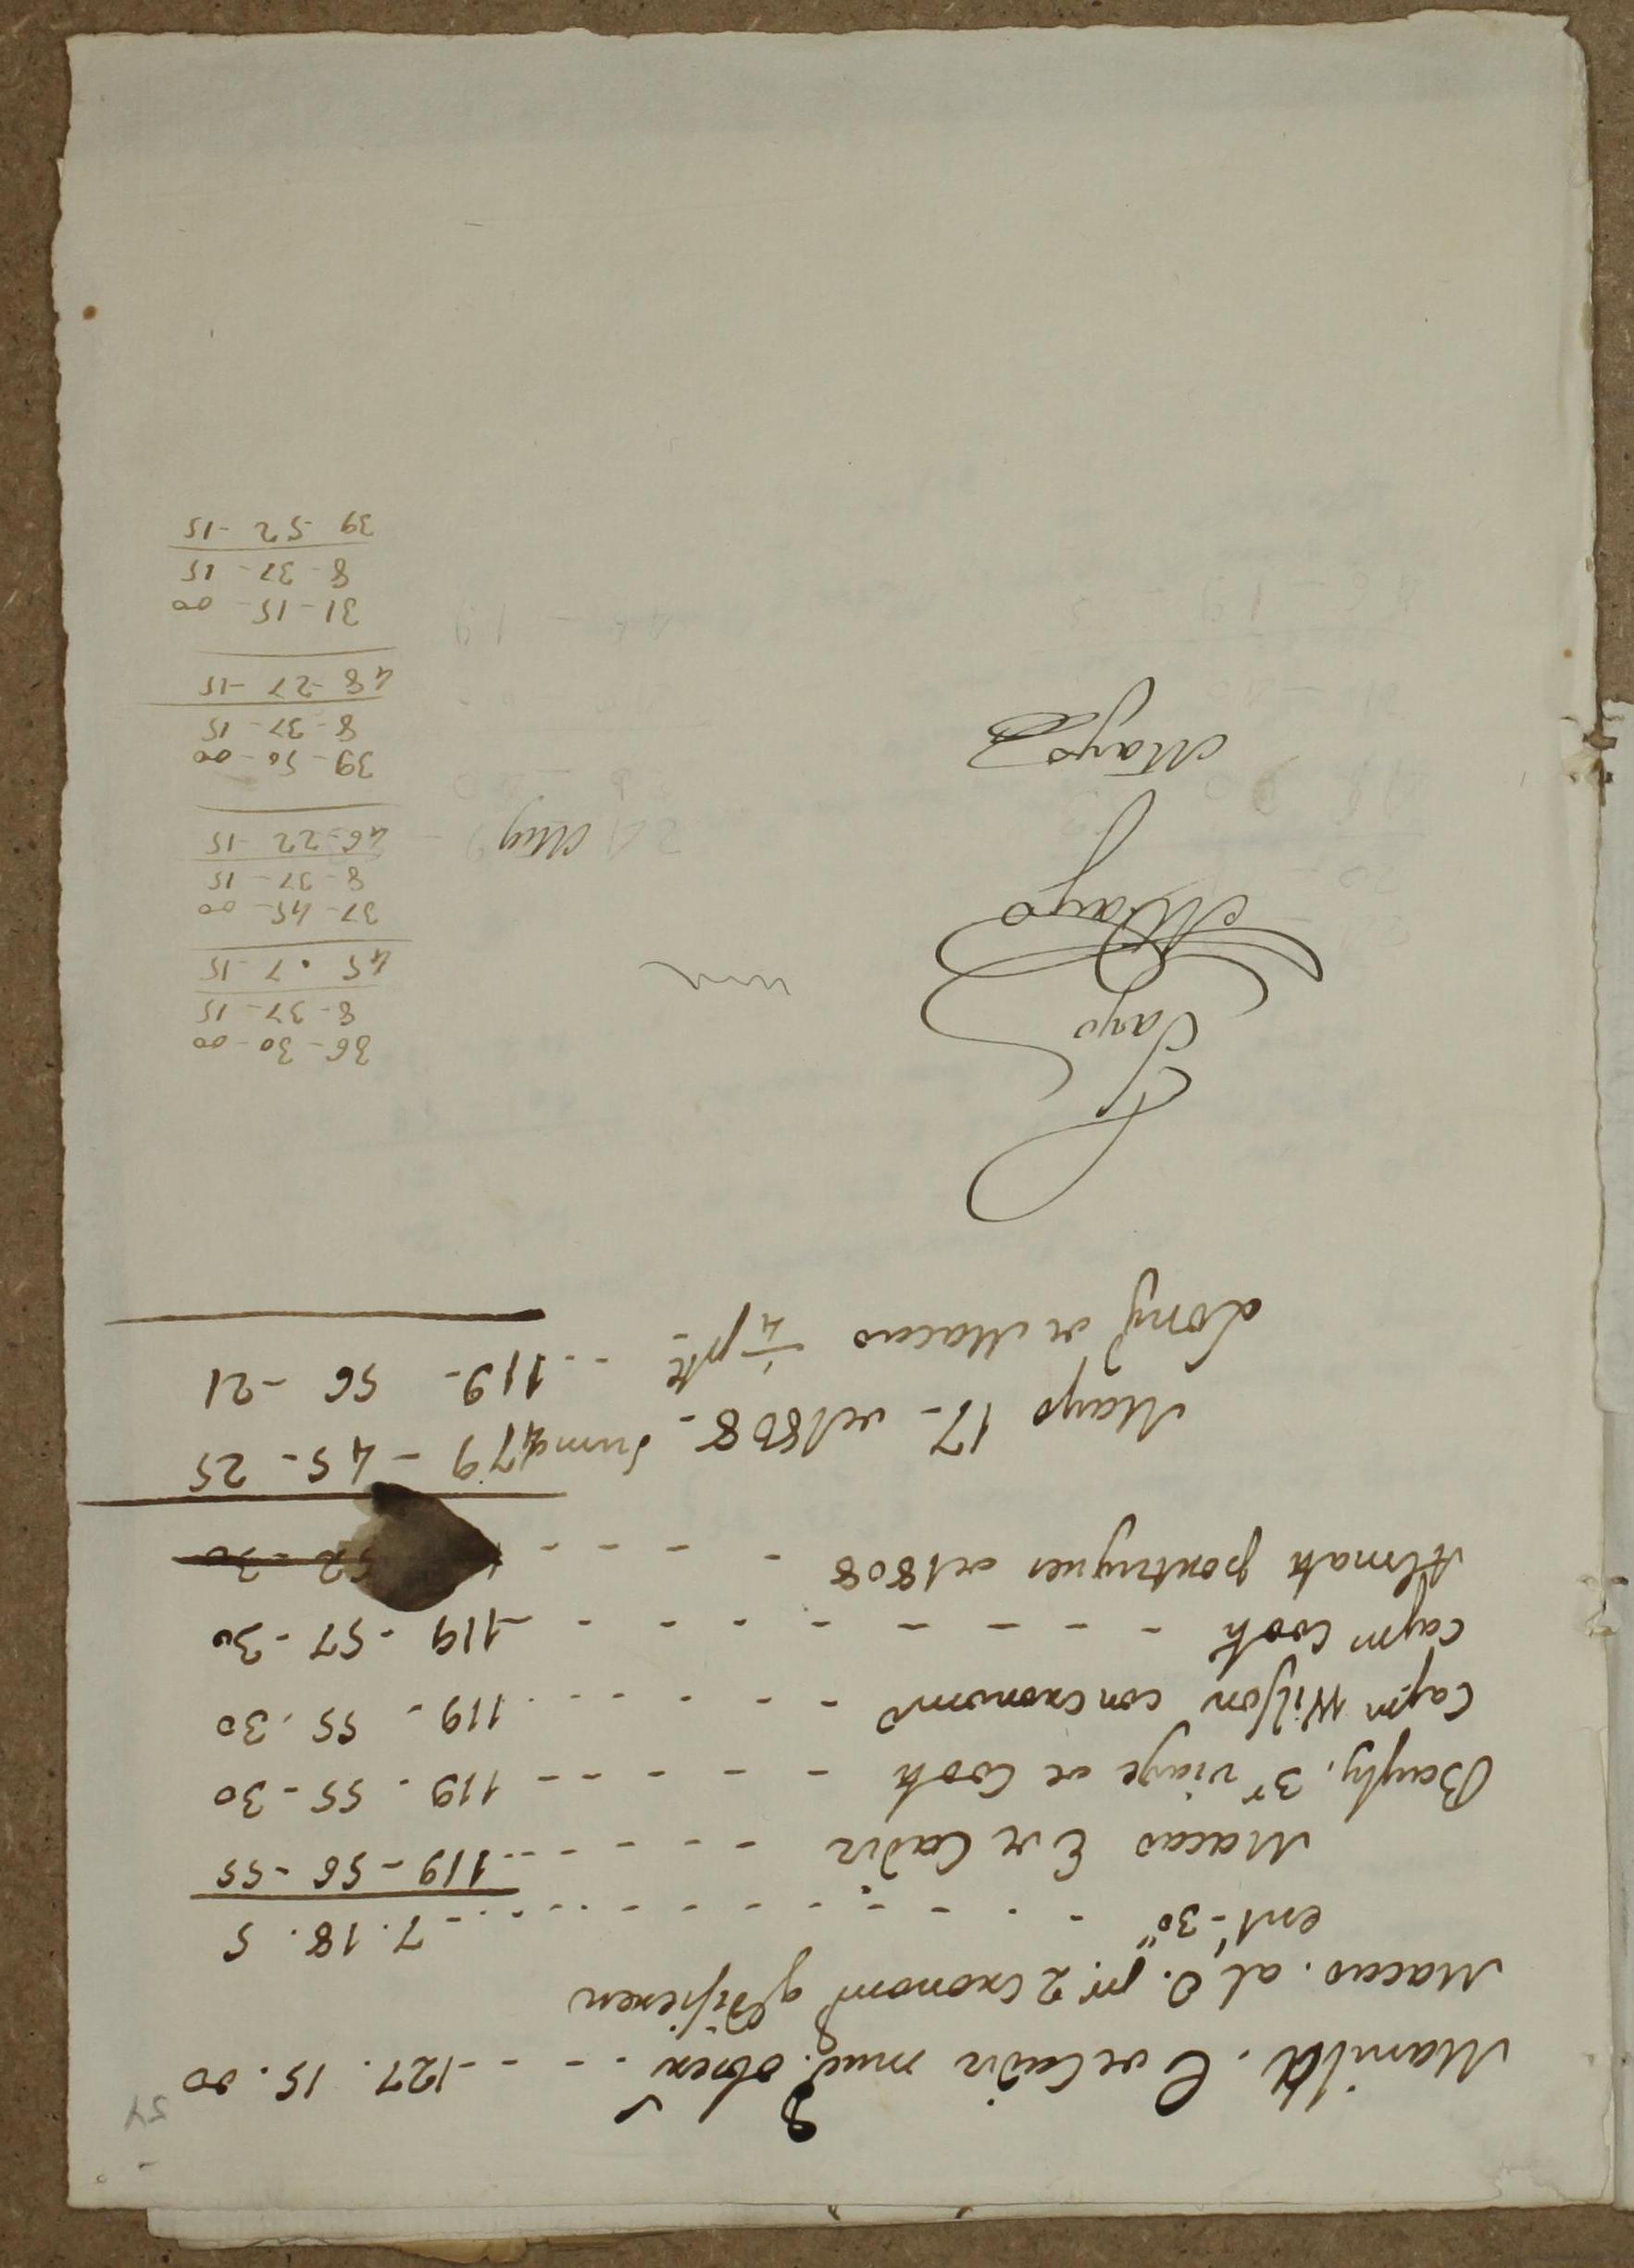 54
Manila. E de Cadiz muchas obser - - - 127. 15. 00
Macao. al O. pr. 2 cronom qe difieren
ent. 30" - - - - - - - - 7. 18. 5
Macao E de Cadiz - - - - - - - 119 - 56 - 55
Bayly. 3r viage de Cook - - - - - - 119 - 55 - 30
Capn Wilson con cronomo - - - - - 119 - 55. 30
Capn Cook - - - - - - - - - 119 - 57 - 30
Almak portugues de 1808 - - - - 52 - 30
Mayo 17 - de 1808 - Suma 479 - 45 - 25
Longd de Macao 1/4 pte - - - 119 - 56 - 21
Cayo
Mayo
Mayo
May
36 - 30 - 00
8 - 37 - 15
45 . 7 - 15
37 - 45 - 00
8 - 37 - 15
46 - 22 15
39 - 50 - 00
8 - 37 - 15
48 - 27 - 15
31 - 15 - 00
8 - 37 - 15
39 - 52 - 15